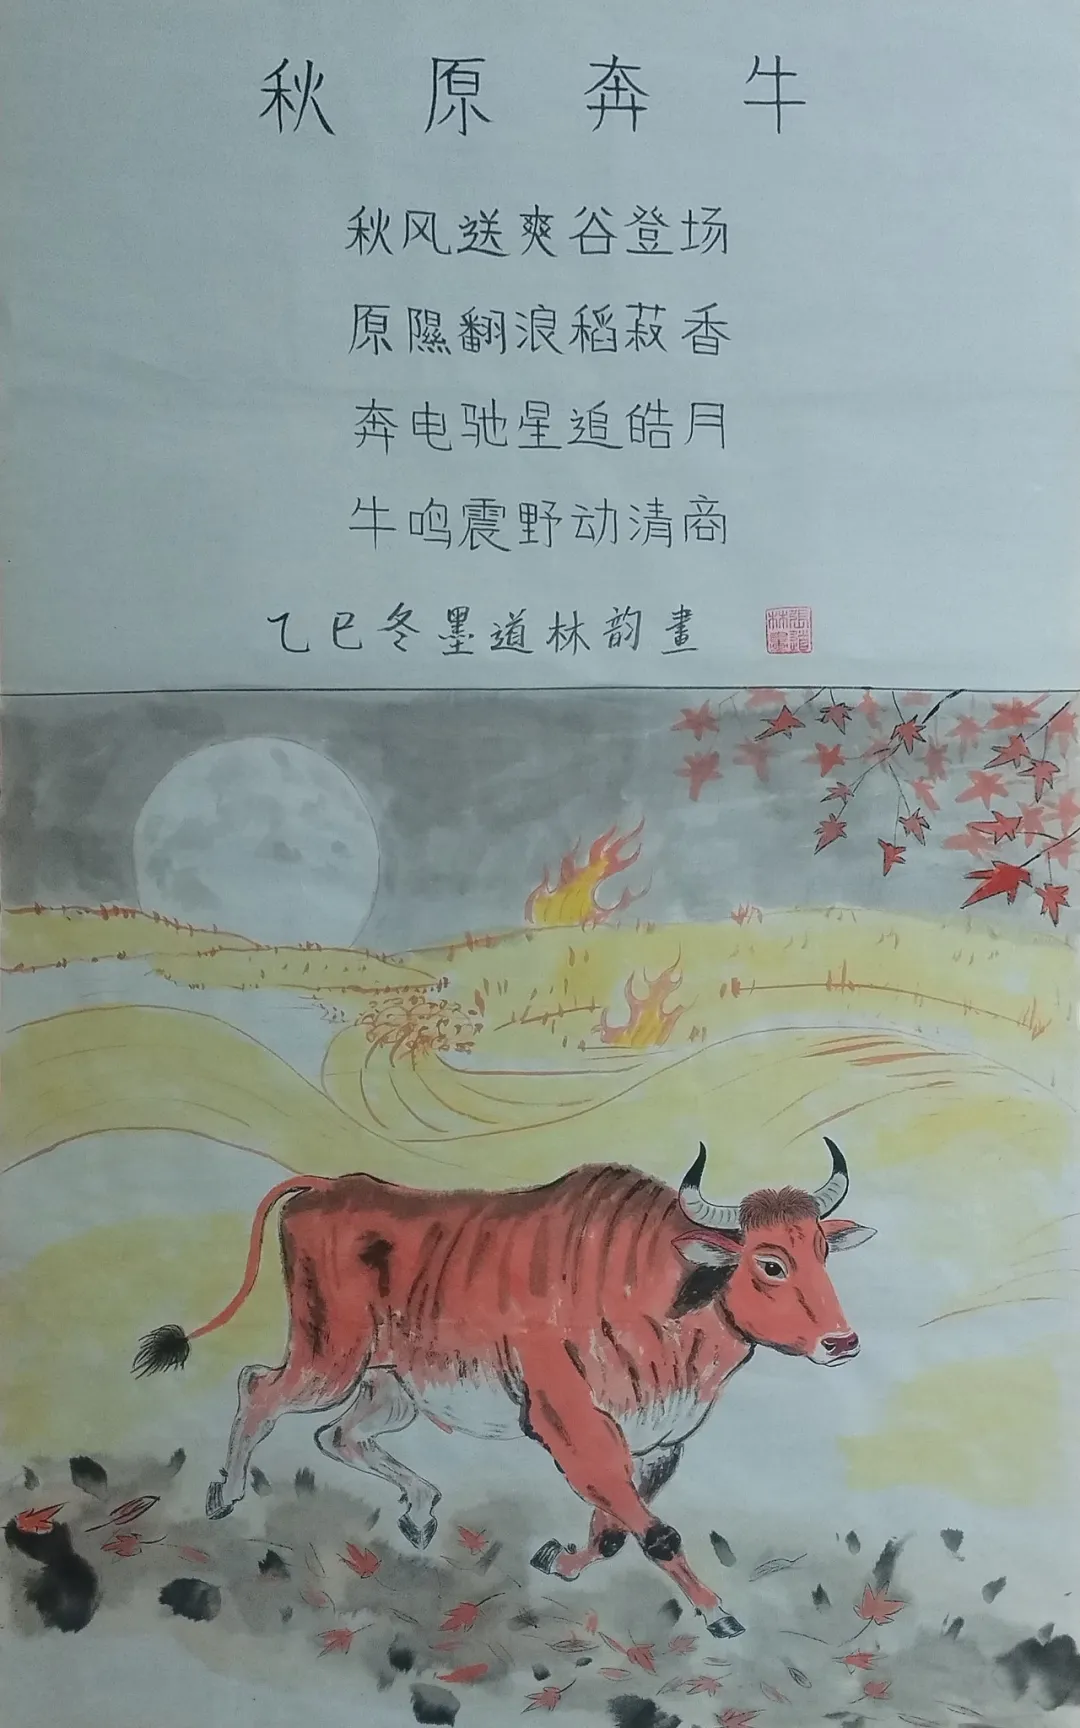 秋原奔牛
秋风送爽谷登场
原隰翻浪稻菽香
奔电驰星追皓月
牛鸣震野动清商
乙巳冬墨道林韵畫
張道林畫